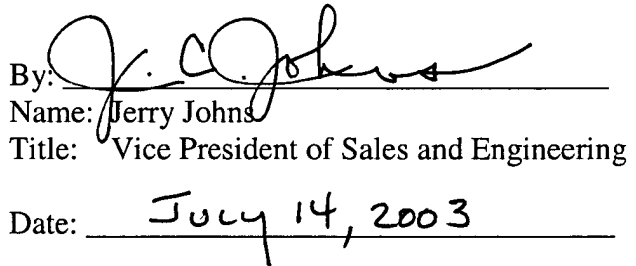 By: J. C. Johns
Name: Jerry Johns
Title: Vice President of Sales and Engineering
Date: July 14, 2003